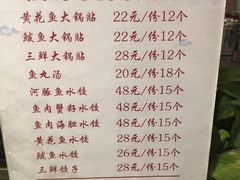 黄花鱼大锅贴 22元/份12个
鲅鱼大锅贴 22元/份12个
三鲜大锅贴 28元/份12个
鱼丸汤 20元/份18个
河豚鱼水饺 48元/份15个
鱼肉蟹籽水饺 48元/份15个
鱼肉海胆水饺 48元/份15个
黄花鱼水饺 28元/份15个
鲅鱼水饺 26元/份15个
三鲜饺子 28元/份15个